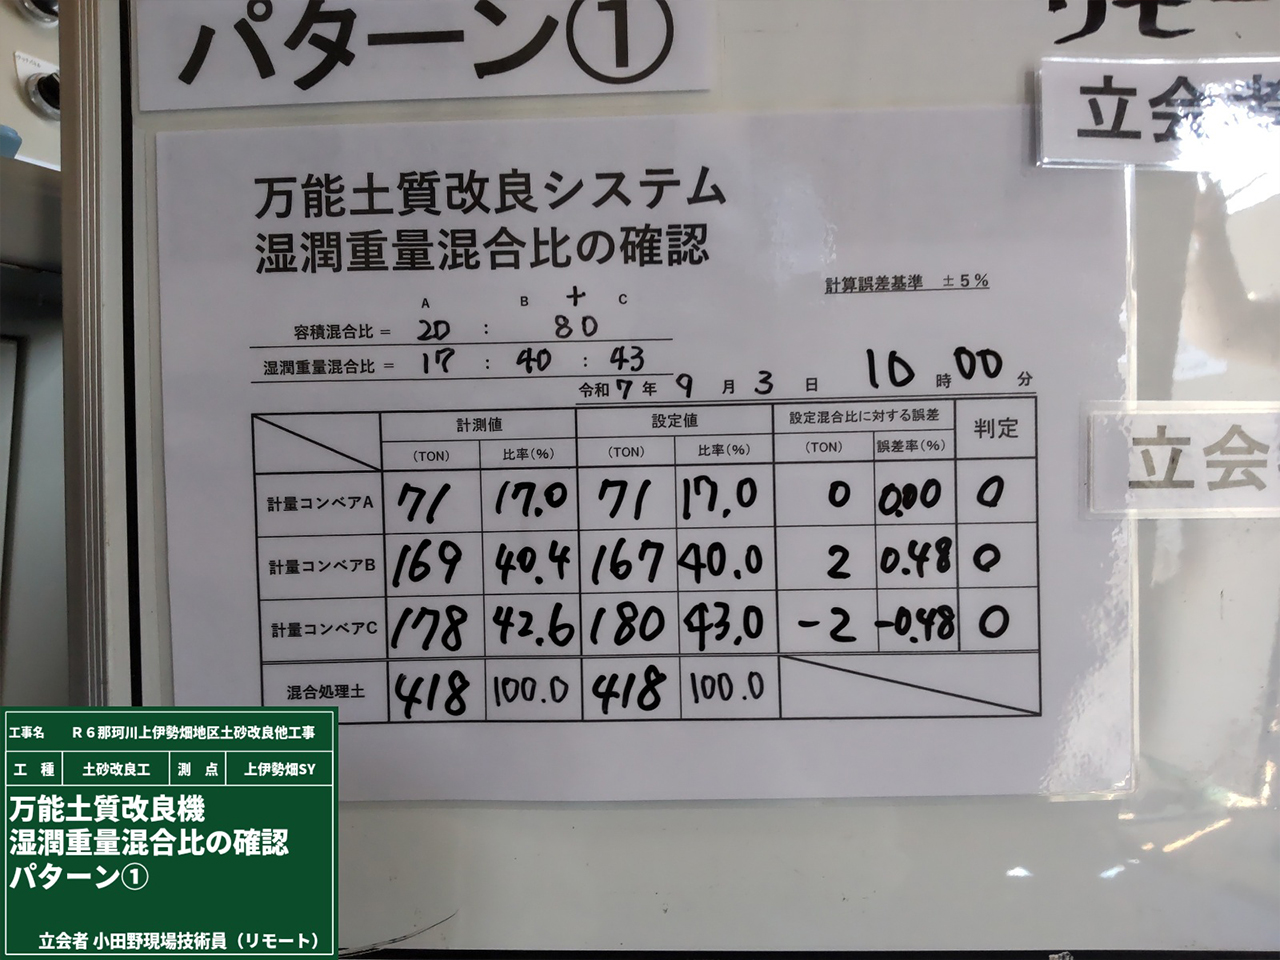 パターン①
リモー
立会者
万能土質改良システム
湿潤重量混合比の確認
計算誤差基準 ±5%
A B + C
容積混合比 = 20 : 80
湿潤重量混合比 = 17 : 40 : 43
令和 7 年 9 月 3 日 10 時 00 分
計測値 設定値 設定混合比に対する誤差 判定
(TON) 比率(%) (TON) 比率(%) (TON) 誤差率(%)
計量コンベアA 71 17.0 71 17.0 0 0.00 0
計量コンベアB 169 40.4 167 40.0 2 0.48 0
計量コンベアC 178 42.6 180 43.0 -2 -0.48 0
混合処理土 418 100.0 418 100.0
立会
工事名 R6那珂川上伊勢畑地区土砂改良他工事
工 種 土砂改良工 測 点 上伊勢畑SY
万能土質改良機
湿潤重量混合比の確認
パターン①
立会者 小田野現場技術員（リモート）